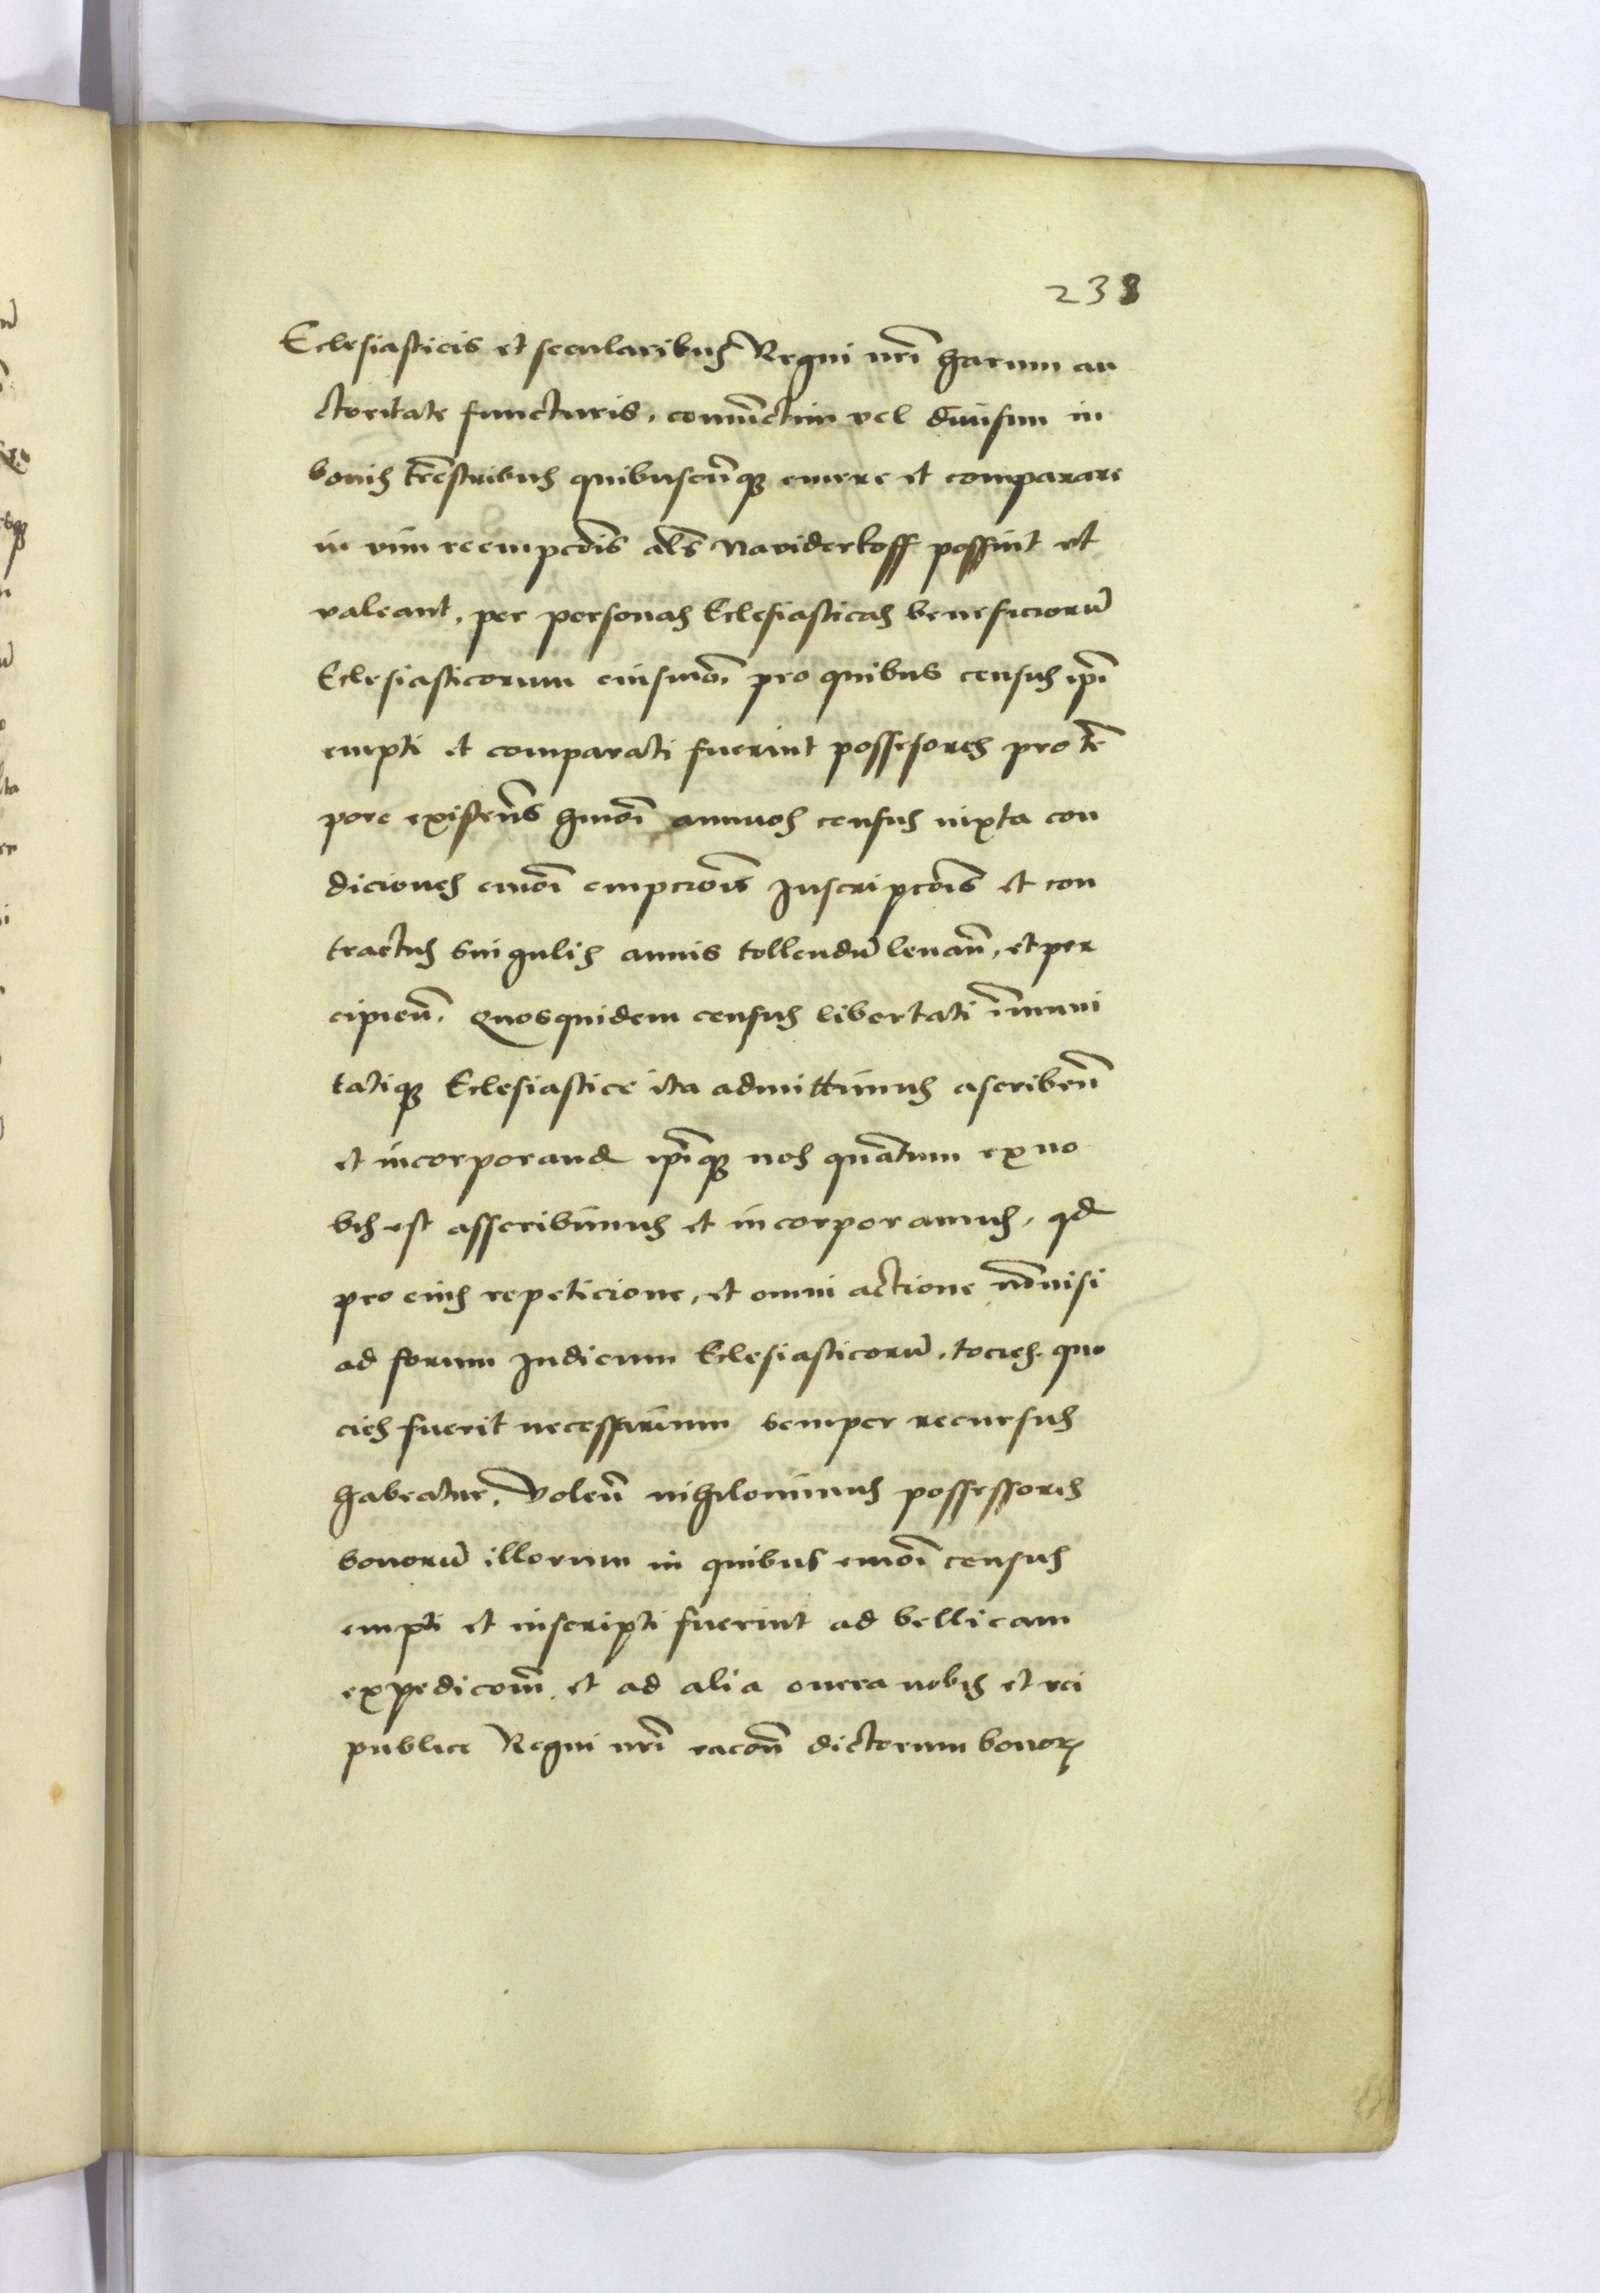 238
Eclesiasticis et secularibus Regni nr̃i harum au
ctoritate functuris, coniũctim vel diuisim in
bonis tr̃estribus quibuscũq3 emere et comparare
in vim reempcõis als̃ naviderkoff possint et
valeant, per personas Eclesiasticas beneficiorũ
Eclesiasticorum eiusmõi pro quibus census ip̃i
empti et comparati fuerint possesores pro tẽ
pore existeñs hmõi annuos census iuxta con
diciones emõi empcionis Inscripcõis et con
tractus singulis annis tollendũ leuañ, et per
cipieñ. Quosquidem census libertati ĩmuni
tatiq3 Eclesiastice ita admittimus ascribeñ
et incorporand ip̃iq3 nos quãtum ex no
bis est asscribimus et incorporamus, qd
pro eius repeticione, et omni actione nõnisi
ad forum Iudicum Eclesiasticorũ, tocies quo
cies fuerit necessarium semper recursus
habeatur, Voleñ nihilominus possessores
bonorũ illorum in quibus emõi census
empti et inscripti fuerint ad bellicam
expedicom̃ et ad alia onera nobis et rei
publice Regni nr̃i racoñ dictorum bonor